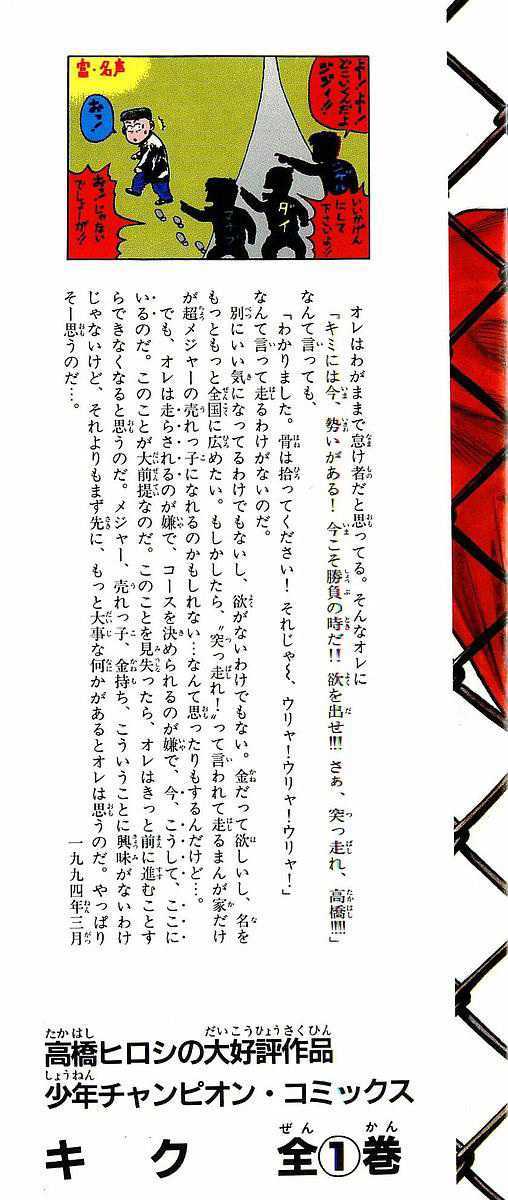 富・名声
よー！よー！
どこいくんだよ
ジジイ!!
おっ！
いいかげん
にして
下さいよ!!
ダイ
マイコ
おっ！じゃない
でしょーが!!
オレはわがままで怠け者だと思ってる。そんなオレに
「キミには今、勢いがある！今こそ勝負の時だ!!欲を出せ!!!さぁ、突っ走れ、高橋!!!!」
なんて言っても、
「わかりました。骨は拾ってください！それじゃ〜、ウリャ！ウリャ！ウリャ！」
なんて言って走るわけがないのだ。
別にいい気になってるわけでもないし、欲がないわけでもない。金だって欲しいし、名を
もっともっと全国に広めたい。もしかしたら、〝突っ走れ！〟って言われて走るまんが家だけ
が超メジャーの売れっ子になれるのかもしれない…なんて思ったりもするんだけど…。
でも、オレは走らされるのが嫌で、コースを決められるのが嫌で、今、こうして、ここに
いるのだ。このことが大前提なのだ。このことを見失ったら、オレはきっと前に進むことす
らできなくなると思うのだ。メジャー、売れっ子、金持ち、こういうことに興味がないわけ
じゃないけど、それよりもまず先に、もっと大事な何かがあるとオレは思うのだ。やっぱり
そー思うのだ…。
一九九四年三月
高橋ヒロシの大好評作品
少年チャンピオン・コミックス
キク 全①巻